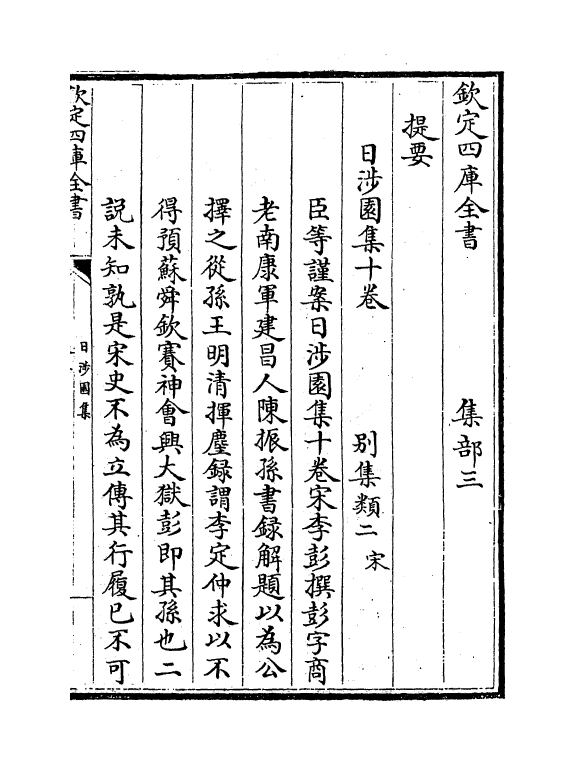 欽定四庫全書　集部三
提要
日涉園集十卷　別集類二 宋
臣等謹案日涉園集十卷宋李彭撰彭字商
老南康軍建昌人陳振孫書録解題以為公
擇之從孫王明清揮麈録謂李定仲求以不
得預蘇舜欽賽神會興大獄彭即其孫也二
説未知孰是宋史不為立傳其行履已不可
欽定四庫全書
日涉園集